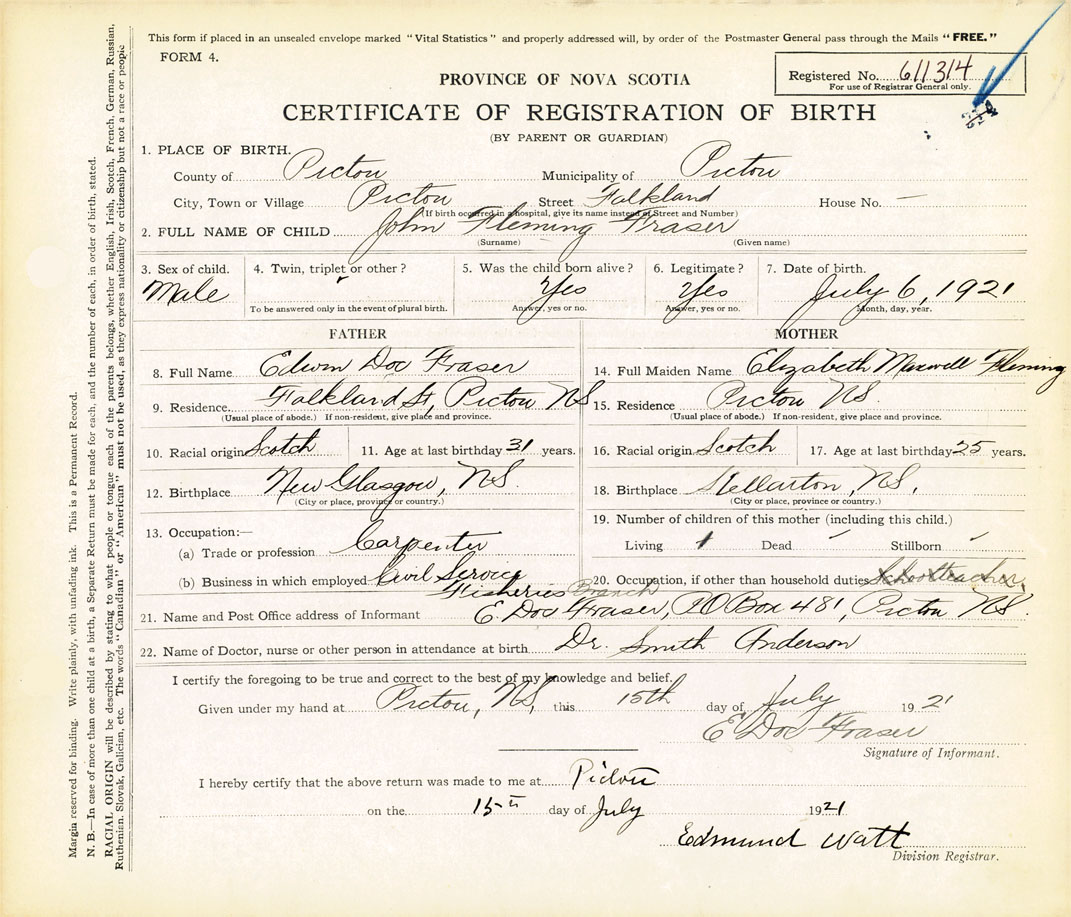 This form if placed in an unsealed envelope marked "Vital Statistics" and properly addressed will, by order of the Postmaster General pass through the Mails "FREE."
FORM 4.
Registered No. 611314
For use of Registrar General only.
PROVINCE OF NOVA SCOTIA
CERTIFICATE OF REGISTRATION OF BIRTH
(BY PARENT OR GUARDIAN)
1. PLACE OF BIRTH.
County of Pictou Municipality of Pictou
City, Town or Village Pictou Street Falkland House No. —
(If birth occurred in a hospital, give its name instead of Street and Number)
2. FULL NAME OF CHILD John Fleming Fraser
(Surname) (Given name)
3. Sex of child. 4. Twin, triplet or other? 5. Was the child born alive? 6. Legitimate? 7. Date of birth.
Male Yes Yes July 6, 1921
To be answered only in the event of plural birth. Answer, yes or no. Answer, yes or no. Month, day, year.
FATHER MOTHER
8. Full Name Edwin Doc Fraser 14. Full Maiden Name Elizabeth Maxwell Fleming
9. Residence Falkland St, Pictou NS 15. Residence Pictou NS.
(Usual place of abode.) If non-resident, give place and province. (Usual place of abode.) If non-resident, give place and province.
10. Racial origin Scotch 11. Age at last birthday 31 years. 16. Racial origin Scotch 17. Age at last birthday 25 years.
12. Birthplace New Glasgow, NS 18. Birthplace Stellarton, NS.
(City or place, province or country.) (City or place, province or country.)
13. Occupation:— 19. Number of children of this mother (including this child.)
(a) Trade or profession Carpenter Living 1 Dead Stillborn
(b) Business in which employed Civil Service 20. Occupation, if other than household duties Schoolteacher
Fisheries Branch
21. Name and Post Office address of Informant E. Doc Fraser, PO Box 481, Pictou NS.
22. Name of Doctor, nurse or other person in attendance at birth Dr. Smith Anderson
I certify the foregoing to be true and correct to the best of my knowledge and belief.
Given under my hand at Pictou, NS, this 15th day of July 1921
E Doc Fraser
Signature of Informant.
I hereby certify that the above return was made to me at Pictou
on the 15th day of July 1921
Edmund Watt
Division Registrar.
Margin reserved for binding. Write plainly, with unfading ink. This is a Permanent Record.
N. B.—In case of more than one child at a birth, a Separate Return must be made for each, and the number of each, in order of birth, stated.
RACIAL ORIGIN will be described by stating to what people or tongue each of the parents belongs, whether English, Irish, Scotch, French, German, Russian,
Ruthenian, Slovak, Galician, etc. The words "Canadian" or "American" must not be used, as they express nationality or citizenship but not a race or people